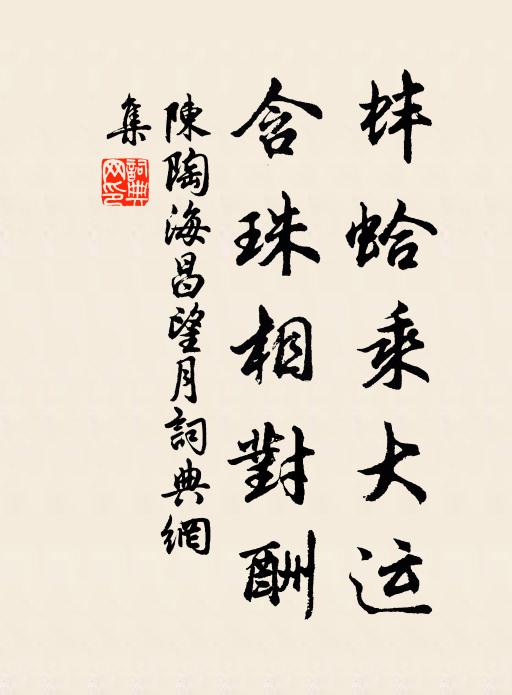 蚌蛤乘大运
含珠相對酬
陳陶海昌望月詞典網
集
詞典網印